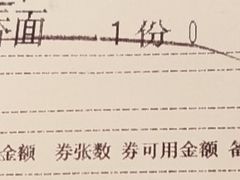 面 1 份 0
金额 券张数 券可用金额